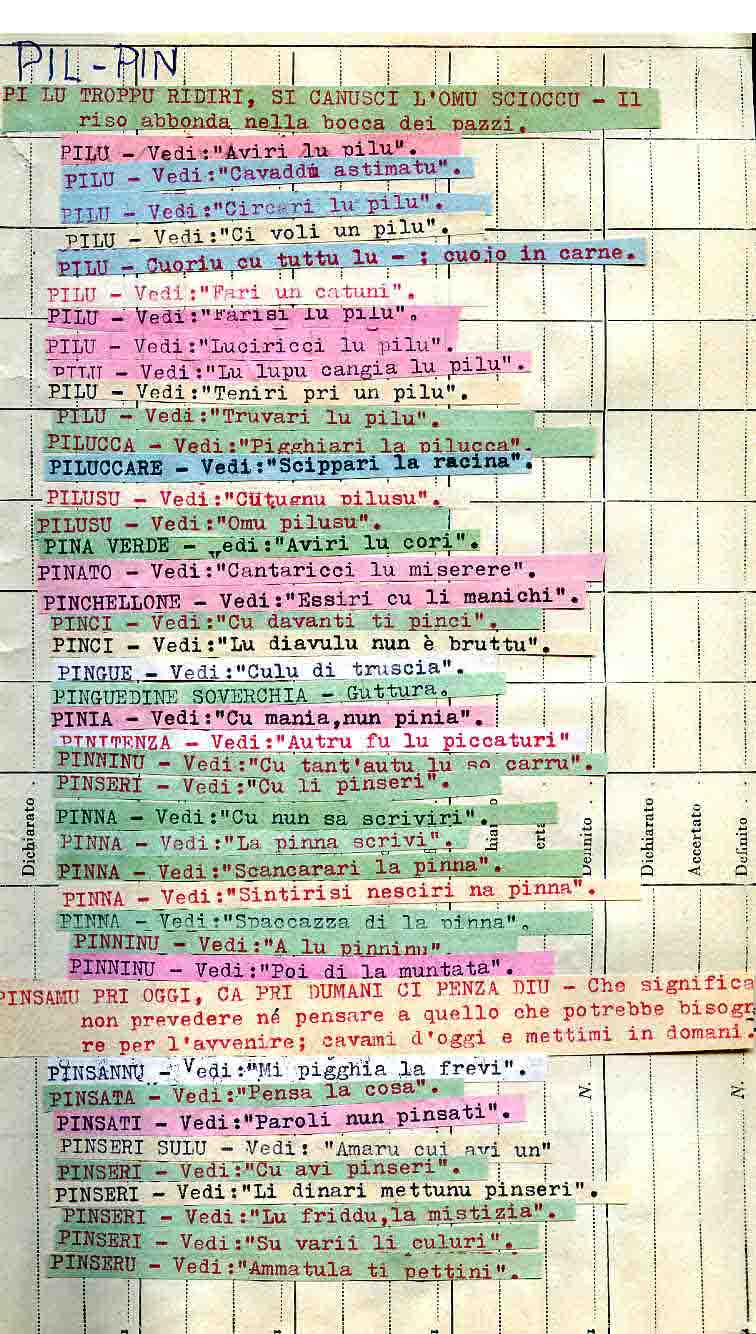 PIL-PIN
PI LU TROPPU RIDIRI, SI CANUSCI L'OMU SCIOCCU - Il
riso abbonda nella bocca dei pazzi.
PILU - Vedi:"Aviri lu pilu".
PILU - Vedi:"Cavaddu astimatu".
PILU - Vedi:"Circari lu pilu".
PILU - Vedi:"Ci voli un pilu".
PILU - Cuoriu cu tuttu lu - ; cuojo in carne.
PILU - Vedi:"Fari un catuni".
PILU - Vedi:"Farisi lu pilu".
PILU - Vedi:"Luciricci lu pilu".
PILU - Vedi:"Lu lupu cangia lu pilu".
PILU - Vedi:"Teniri pri un pilu".
PILU - Vedi:"Truvari lu pilu".
PILUCCA - Vedi:"Pigghiari la pilucca".
PILUCCARE - Vedi:"Scippari la racina".
PILUSU - Vedi:"Cutugnu pilusu".
PILUSU - Vedi:"Omu pilusu".
PINA VERDE - Vedi:"Aviri lu cori".
PINATO - Vedi:"Cantaricci lu miserere".
PINCHELLONE - Vedi:"Essiri cu li manichi".
PINCI - Vedi:"Cu davanti ti pinci".
PINCI - Vedi:"Lu diavulu nun è bruttu".
PINGUE - Vedi:"Culu di truscia".
PINGUEDINE SOVERCHIA - Guttura.
PINIA - Vedi:"Cu mania,nun pinia".
PINITENZA - Vedi:"Autru fu lu piccaturi"
PINNINU - Vedi:"Cu tant'autu lu so carru".
PINSERI - Vedi:"Cu li pinseri".
PINNA - Vedi:"Cu nun sa scriviri".
PINNA - Vedi:"La pinna scrivi".
Dichiarato
Definito
Dichiarato
Accertato
Definito
PINNA - Vedi:"Scancarari la pinna".
PINNA - Vedi:"Sintirisi nesciri na pinna".
PINNA - Vedi:"Spaccazza di la pinna".
PINNINU - Vedi:"A lu pinninu"
PINNINU - Vedi:"Poi di la muntata".
PINSAMU PRI OGGI, CA PRI DUMANI CI PENZA DIU - Che significa
non prevedere né pensare a quello che potrebbe bisogn
re per l'avvenire; cavami d'oggi e mettimi in domani.
PINSANNU - Vedi:"Mi pigghia la frevi".
PINSATA - Vedi:"Pensa la cosa".
N.
N.
PINSATI - Vedi:"Paroli nun pinsati".
PINSERI SULU - Vedi: "Amaru cui avi un"
PINSERI - Vedi:"Cu avi pinseri".
PINSERI - Vedi:"Li dinari mettunu pinseri".
PINSERI - Vedi:"Lu friddu,la mistizia".
PINSERI - Vedi:"Su varii li culuri".
PINSERU - Vedi:"Ammatula ti pettini".